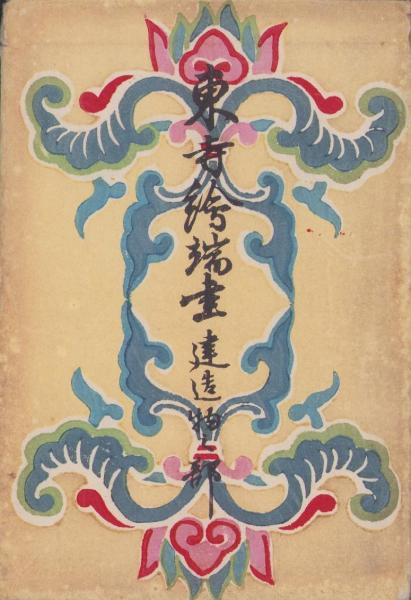 東方繪端書 建造物之部